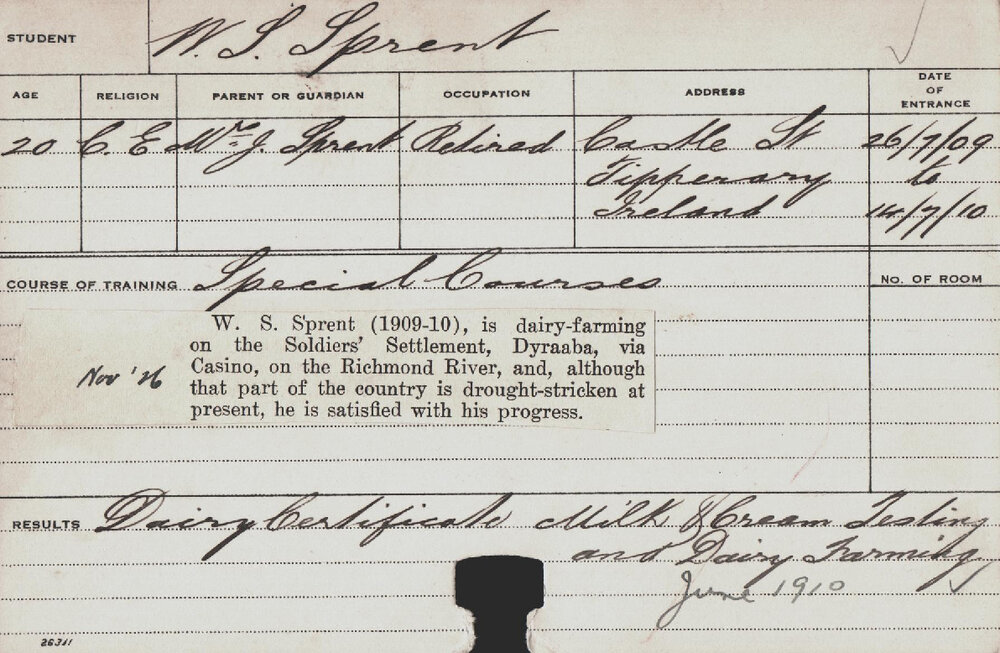 STUDENT W. S. Sprent
AGE RELIGION PARENT OR GUARDIAN OCCUPATION ADDRESS DATE OF ENTRANCE
20 C. E. Mr. J. Sprent Retired Castle St 26/7/09
Tipperary to
Ireland 14/7/10
COURSE OF TRAINING Special Courses No. OF ROOM
W. S. Sprent (1909-10), is dairy-farming
on the Soldiers' Settlement, Dyraaba, via
Nov '26 Casino, on the Richmond River, and, although
that part of the country is drought-stricken at
present, he is satisfied with his progress.
RESULTS Dairy Certificate Milk & Cream Testing
and Dairy Farming
June 1910
26311